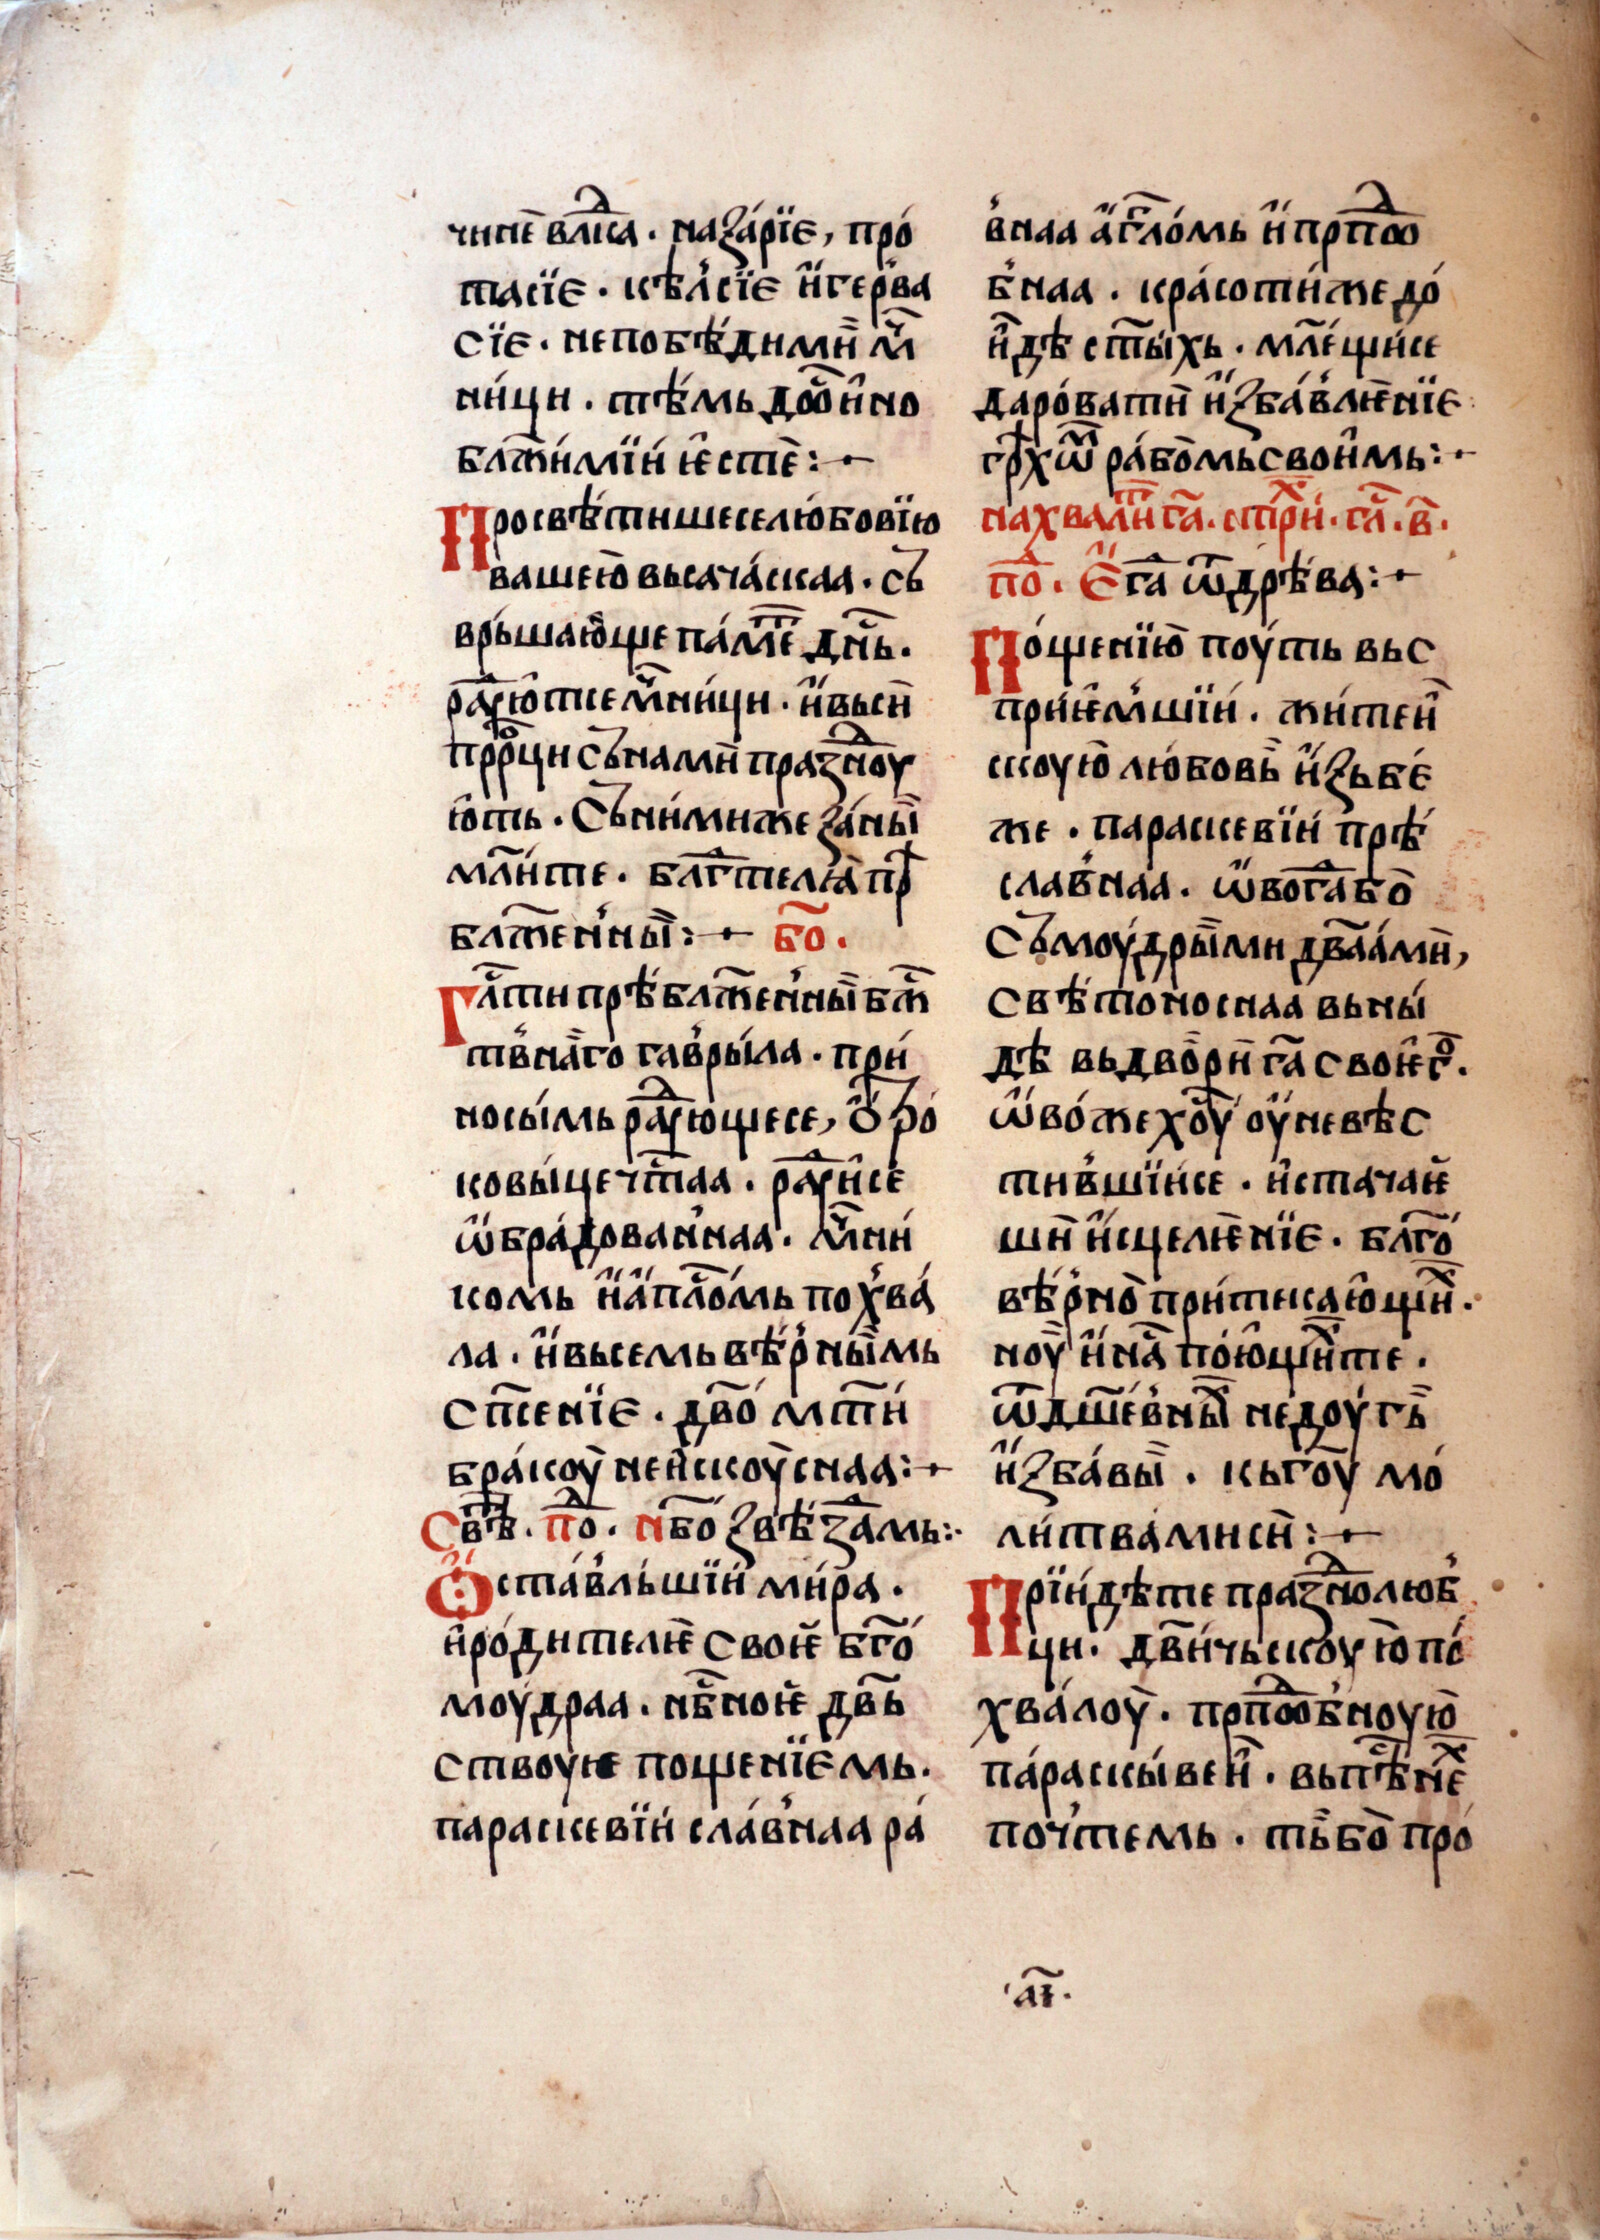 чинѐ влⷣка. наꙁа́рїе, про́
тасїе. кѣ́лсїе и҆ герва
сїе. непобѣ́димїи мч҃
ни́ци. тѣ́мь досто́йно
блж҃и́мїи ѥ҆стѐ:
Просвѣ́тишесе лю́бовїю
вашею̀ вьсача́скаа. съ
врьша́ющѐ па́меть дн҃ь.
радꙋютсе мч҃ни́ци. и҆ вьси
прⷪ҇рци съ намѝ праꙁⷣноу
ю҆ть. Съни́миже ꙁа́ны
мл҃и́те. блгⷣтели прѣ
блж҃е́нны: бо҃.
Гл҃ти прѣ́блж҃е́нны бж҃
тв́наго гав́ры́ла. при
носы́мь радꙋющесе, ѿро
ковы́це чⷭ҇таа. радꙋи́се
ѡ҆бра́дованнаа. мч҃ни
комь и҆ а҆пⷭ҇ло́мь пох́ва́
ла. и҆ вьсемь вѣ́рнымь
сп҃сенїе. дв҃о́ мт҃и
бра́коу неи́скоу́снаа:
Свѣ́т. поⷣ. нб҃о́ ꙁвѣ́ꙁдамь:
Ѻ҆ста́вльшїи ми́ра.
и҆ ро́дителѥ своѥ б҃го́
моу́драа. нб҃ноѥ дв҃ь
ствоуѥ пощенїемь.
параскевїи сла́внаа ра́
в́наа а҆гг҃ло́мь и҆ прпⷣо
б́наа. кра́соти́же до́
и҆дѣ ст҃ы́хь. мл҃е́щи́се
даро́вати и҆ꙁба́влѥнїе
грⷯѡⷨ ра́бо́мь свои҆мь:
на хвали́тⷯ га. стⷯри́. гл҃. в҃.
поⷣ. Е҆гⷣа ѿ дрѣ́ва:
По́щенїю поу́ть вьс
прїѥмшїи. жи́теи
скоую лю́бовь и҆ꙁьбе́
же. параскевїи прѣ́
слав́наа. ѡ҆вогⷣа бо̀
Съ моу́дрыми дв҃а́ми,
свѣ́тоно́снаа вьны́
дѣ вь дво́ри га҃ своѥгⷪ.
ѡ҆во́же хоу҃ оу҆невѣс
тив́шїисе. и҆стачаѥ
ши и҆сцелѥнїе. блг҃о́
вѣ́рно при́тека́ющїиⷯ.
ноу̀ и҆ на҃ по́ющи́те.
ѿ дш҃е́вныⷯ недоу́гь
и҆ꙁба́вы. кь г҃оу мо
ли́тва́ми си:
Прїидѣте праꙁⷣнолюб́
ци. дв҃и́чьскоую по́
хва́лоу. прпⷣоб́ноую
па́раскы́веи. вь пѣⷭ҇неⷯ
поч́темь. тьбо̀ про́
аі҃.